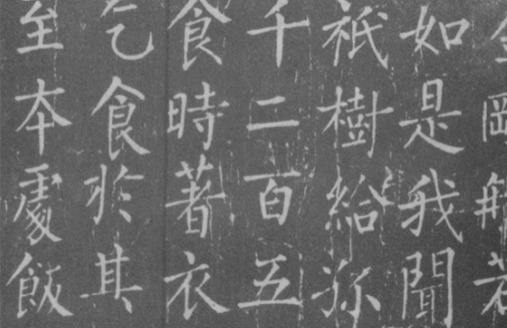 岡般若
如是我聞
祇樹給孫
千二百五
食時著衣
乞食於其
至本處飯